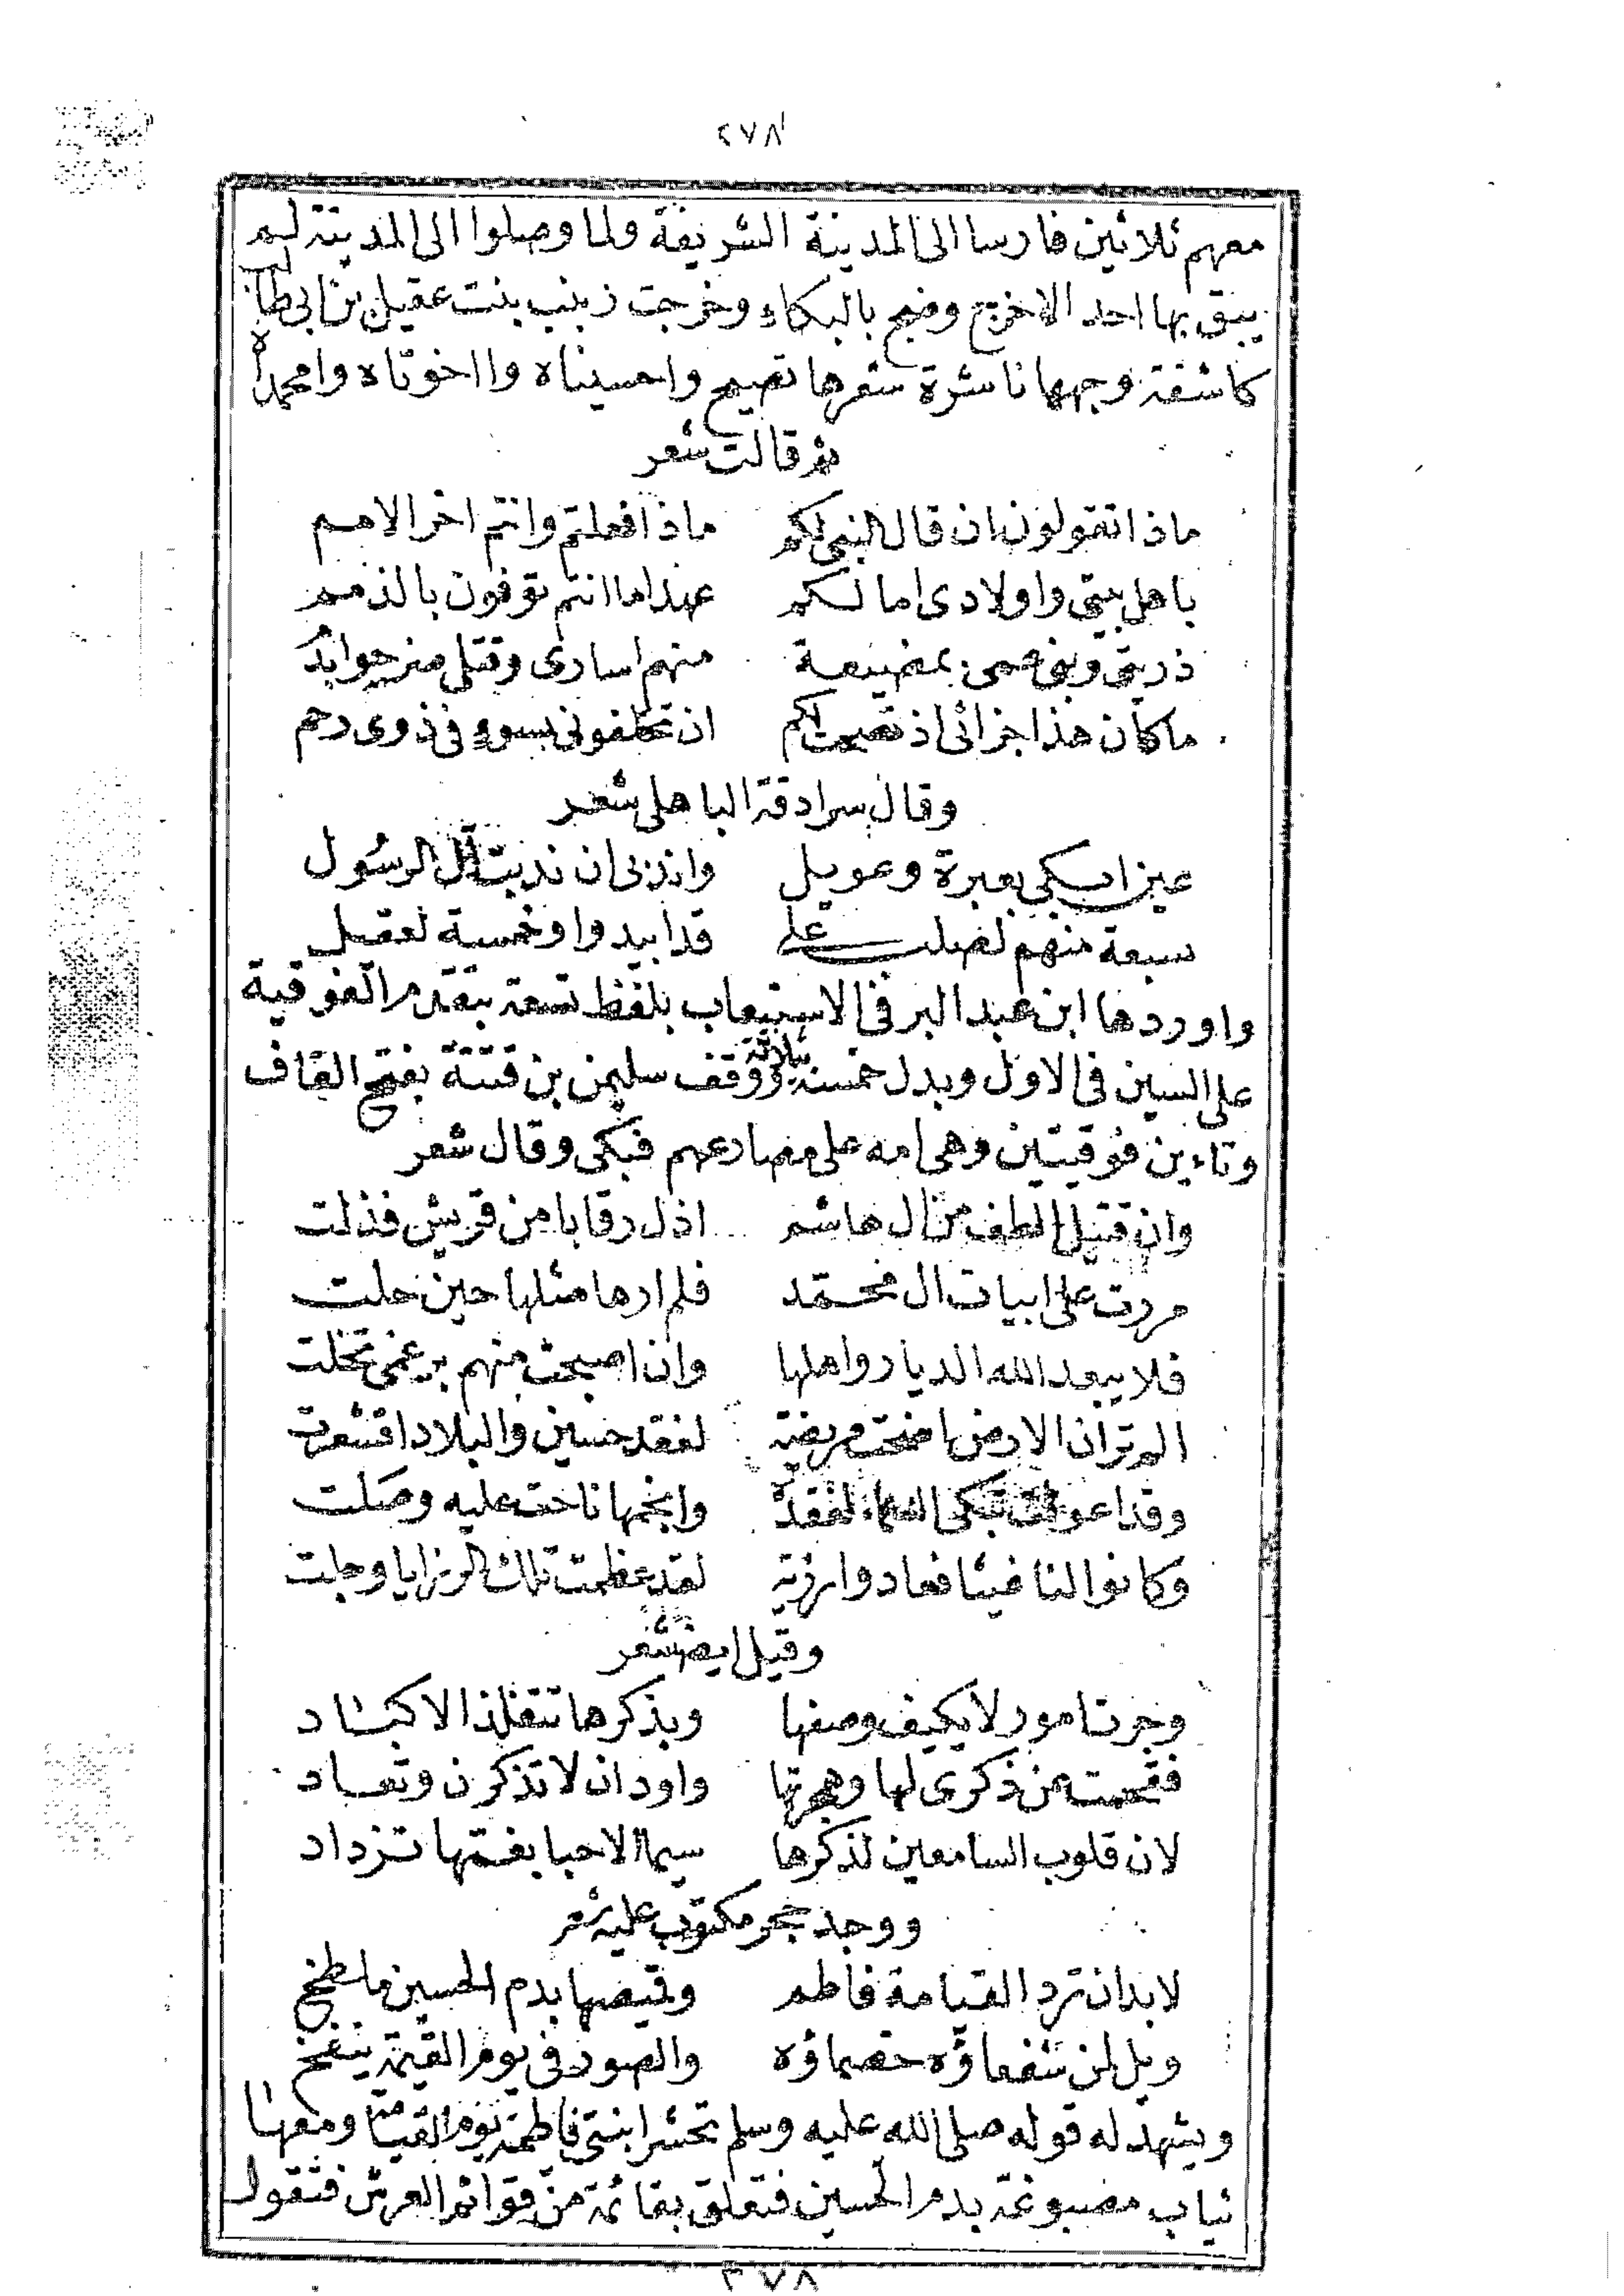 ٢٧٨
معهم ثلاثين فارسا الى المدينة الشريفة ولما وصلوا الى المدينة لم
يبق بها احد الا خرج وضج بالبكاء وخرجت زينب بنت عقيل بن ابي طالب
كاشفة وجهها ناشرة شعرها تصيح واحسيناه وااخوتاه وامحمداه
ثم قالت شعر
ماذا تقولون ان قال النبي لكم ماذا فعلتم وانتم اخر الامم
باهل بيتي واولادي اما لكم عهد اما انتم توفون بالذمم
ذريتي وبنو عمي بمضيعة منهم اسارى وقتلى ضرجوا بدم
ما كان هذا جزائي اذ نصحت لكم ان تخلفوني بسوء في ذوي رحم
وقال سرادقة الباهلي شعر
عين ابكي بعبرة وعويل واندبي ان ندبت آل الرسول
سبعة منهم لصلب علي قد ابيدوا وخمسة لعقيل
واوردها ابن عبد البر في الاستيعاب بلفظ تسعة بتقدم الفوقية
على السين في الاول وبدل خمسة ثلاثة ووقف سليمن بن قتتة بفتح القاف
وتاءين فوقيتين وهي امه على مصارعهم فبكى وقال شعر
وان قتيل الطف من ال هاشم اذل رقابا من قريش فذلت
مررت على ابيات ال محمد فلم ارها مثلها حين حلت
فلا يبعد الله الديار واهلها وان اصبحت منهم برغمي تخلت
الم تر ان الارض اضحت مريضة لفقد حسين والبلاد اقشعرت
وقد اعولت تبكي السماء لفقده وانجمها ناحت عليه وصلت
وكانوا لنا غيثا فعادوا رزية لقد عظمت تلك الرزايا وجلت
وقيل ايضا شعر
وجرت امور لا يكيف وصفها وبذكرها تتفلذ الاكباد
من ذكرى لها وهجرتها واود ان لا تذكرن وتعاد
لان قلوب السامعين لذكرها سيما الاحبا بغمها تزداد
ووجد حجر مكتوب عليه شعر
لا بد ان ترد القيامة فاطم وقميصها بدم الحسين ملطخ
ويل لمن شفعاؤه خصماؤه والصور في يوم القيمة ينفخ
ويشهد له قوله صلى الله عليه وسلم تحشر ابنتي فاطمة يوم القيامة ومعها
ثياب مصبوغة بدم الحسين فتعلق بقائمة من قوائم العرش فتقول
٢٧٨